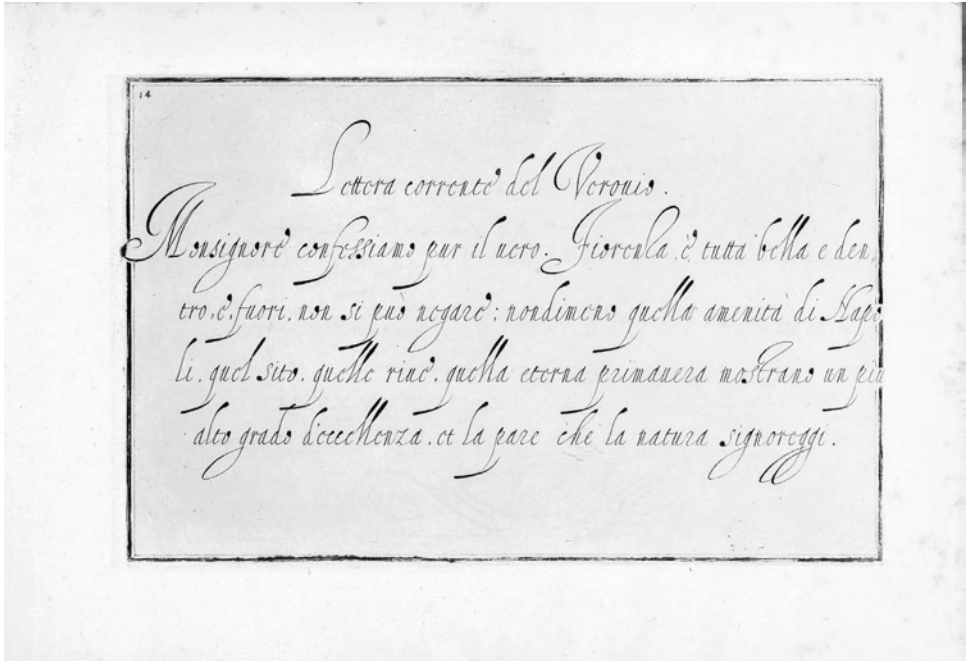 14
Lettera corrente del Verovio.
Monsignore confessiamo pur il uero. Fiorenla è, tutta bella e den,
tro, e, fuori, non si può negare; nondimeno quella amenità di Napo
li, quel sito, quelle riue, quella eterna primauera mostrano un piu
alto grado d'eccellenza, et la pare che la natura signoreggi.